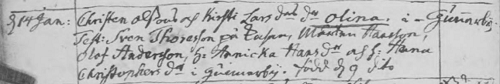 14 Jan: Christen olsons och Kirsti Lars dotr dr olina. i Gunnarby.
Test: Sven Thoresson på Mårten Haasson,
Olof Anderson, h: Annicka Haas dr af h: Hana
Christophers dr i Gunnarby. född d 9 dito